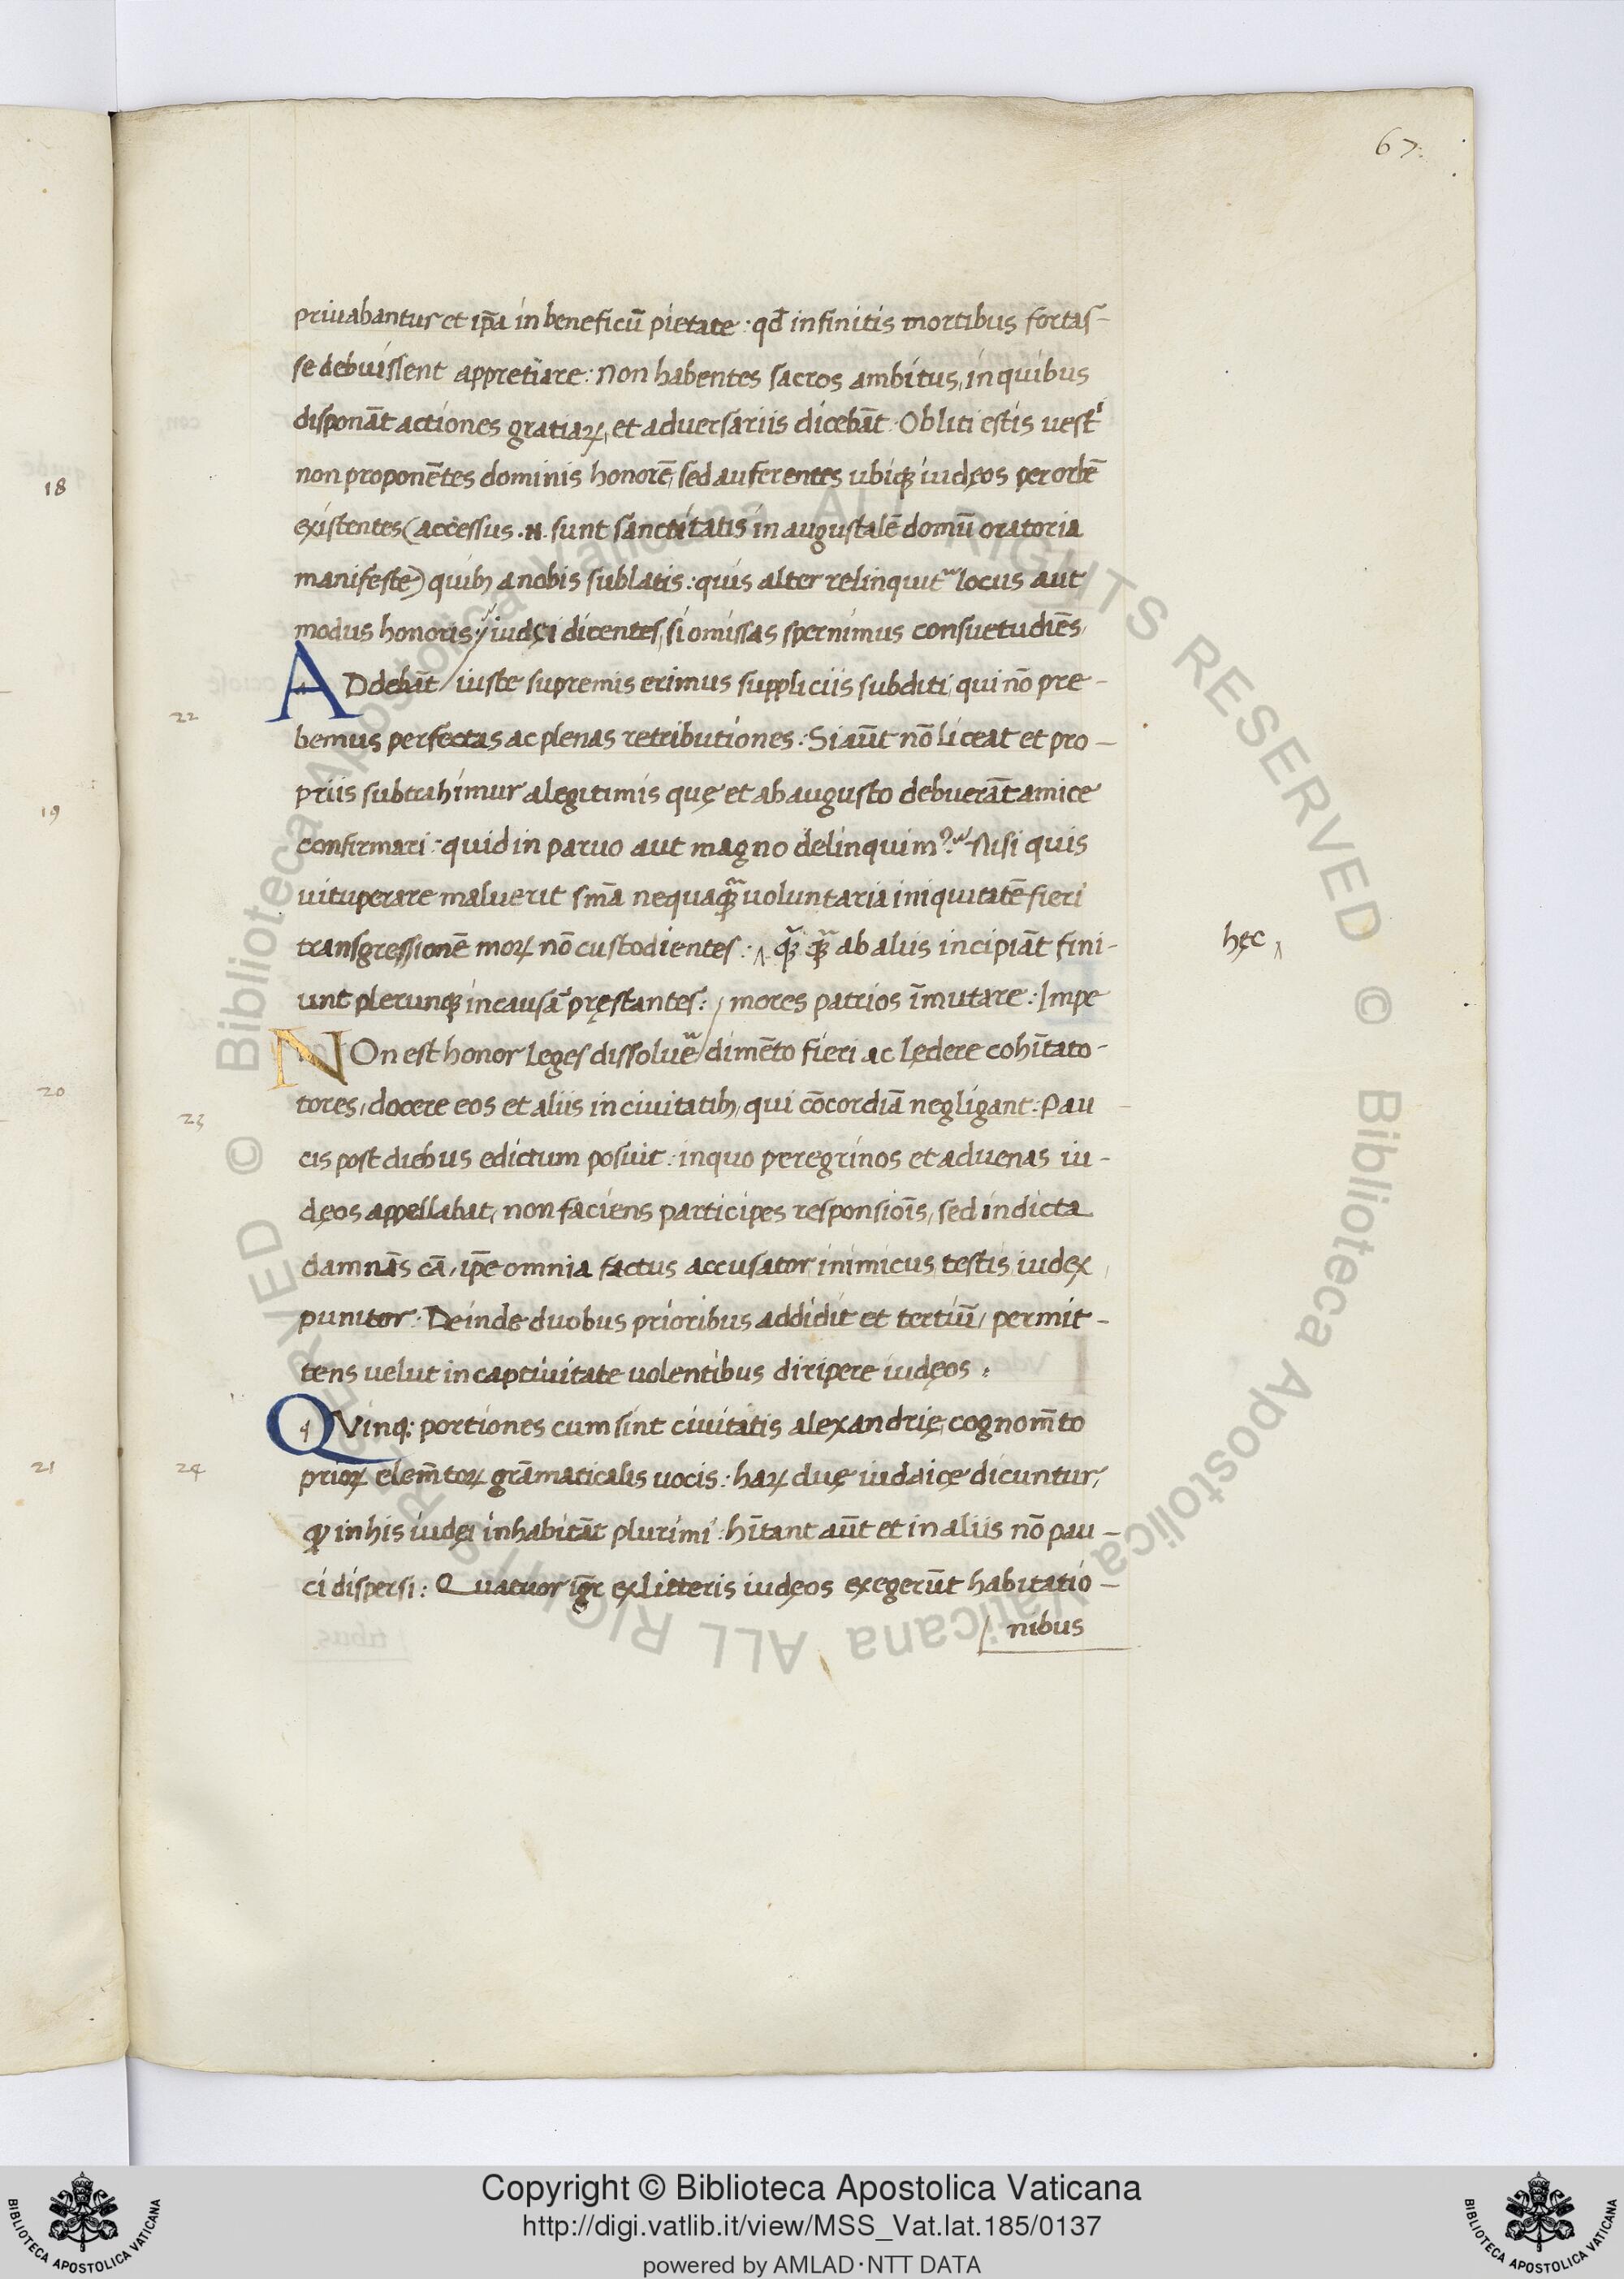 67.
priuabantur et ip̄a in beneficū pietate: qđ infinitis mortibus fortas-
se debuissent appretiare: Non habentes sacros ambitus, in quibus
disponāt actiones gratiaꝝ, et aduersariis dicebāt: Obliti estis uestⁱ
non proponētes dominis honorē, sed auferentes ubiqꝫ iudęos per orbē
existentes (accessus .n. sunt sanctitatis in augustalē domū oratoria
manifeste) quibꝫ a nobis sublatis: quis alter relinquit᷑ locus aut
modus honoris: iudęi dicentes, si omissas spernimus consuetudīes,
22
ADdebāt / iuste supremis erimus suppliciis subditi, qui nō pre-
bemus perfectas ac plenas retributiones: Si aūt nō liceat et pro-
priis subtrahimur a legitimis quę et ab augusto debuerāt amice
confirmari: quid in paruo aut magno delinquimꝰ? Nisi quis
uituperare maluerit sm̄a nequaq̄ȝ uoluntaria iniquitatē fieri
transgressionē moꝝ nō custodientes: ‸ q̄ȝ q̄ȝ ab aliis incipiāt fini-
hęc ‸
unt plerunqꝫ in causā pręstantes: / mores patrios īmutare: Impe
NOn est honor leges dissoluē / dimēto fieri ac lędere cohītato-
23
tores, docere eos et aliis in ciuitatibꝫ, qui cōcordiā negligant: Pau
cis post diebus edictum posuit: in quo peregrinos et aduenas iu-
dęos appellabat, non faciens participes responsiōis, sed indicta
damnās cā, ip̄e omnia factus accusator inimicus testis iudex
punitor: Deinde duobus prioribus addidit et tertiū, permit-
tens uelut in captiuitate uolentibus diripere iudęos:
QVinqꝫ portiones cum sint ciuitatis alexandrię, cognom̄to
24
prioꝝ elem̄toꝝ grāmaticalis uocis: haꝝ duę iudaicę dicuntur,
ꝙ in his iudęi inhabitāt plurimi: hītant aūt et in aliis nō pau-
ci dispersi: Quatuor igr̄ ex litteris iudęos exegerūt habitatio-
nibus
18
19
20
21
Copyright © Biblioteca Apostolica Vaticana
http://digi.vatlib.it/view/MSS_Vat.lat.185/0137
powered by AMLAD·NTT DATA
BIBLIOTECA APOSTOLICA VATICANA
BIBLIOTECA APOSTOLICA VATICANA
© Biblioteca Apostolica Vaticana ALL RIGHTS RESERVED © Biblioteca Apostolica Vaticana ALL RIGHTS RESERVED